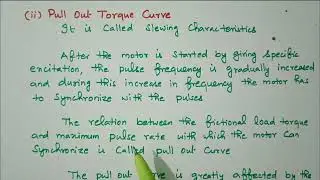 (ii) Pull Out Torque Curve
It is Called Slewing Characteristics
After the motor is started by giving specific
excitation, the pulse frequency is gradually increased
and during this increase in frequency the motor has
to Synchronize with the pulses
The relation between the frictional load torque
and maximum pulse rate with which the motor Can
Synchronize is Called pull out Curve
The pull out Curve is greatly affected by the